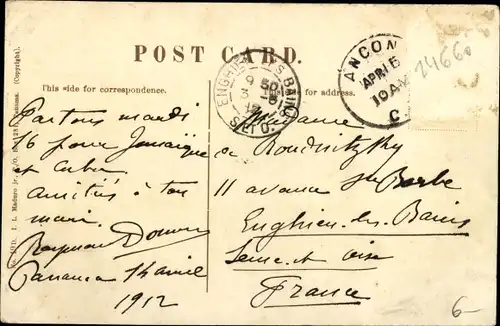 POST CARD.
This side for correspondence.
This side for address.
ENGHIEN LES BAINS
S. ET O.
ANCON
APR 15
10 AM
C.
24660
Partons mardi
16 pour Jamaïque
et Cuba
Amitiés à ton
mari.
Raymond
Panama 14 avril
1912
Madame
de Roudnitzky
11 avenue Ste Barbe
Enghien-les-Bains
Seine et Oise
France
6-
I. L. Maduro Jr.
Panama. (Copyright).